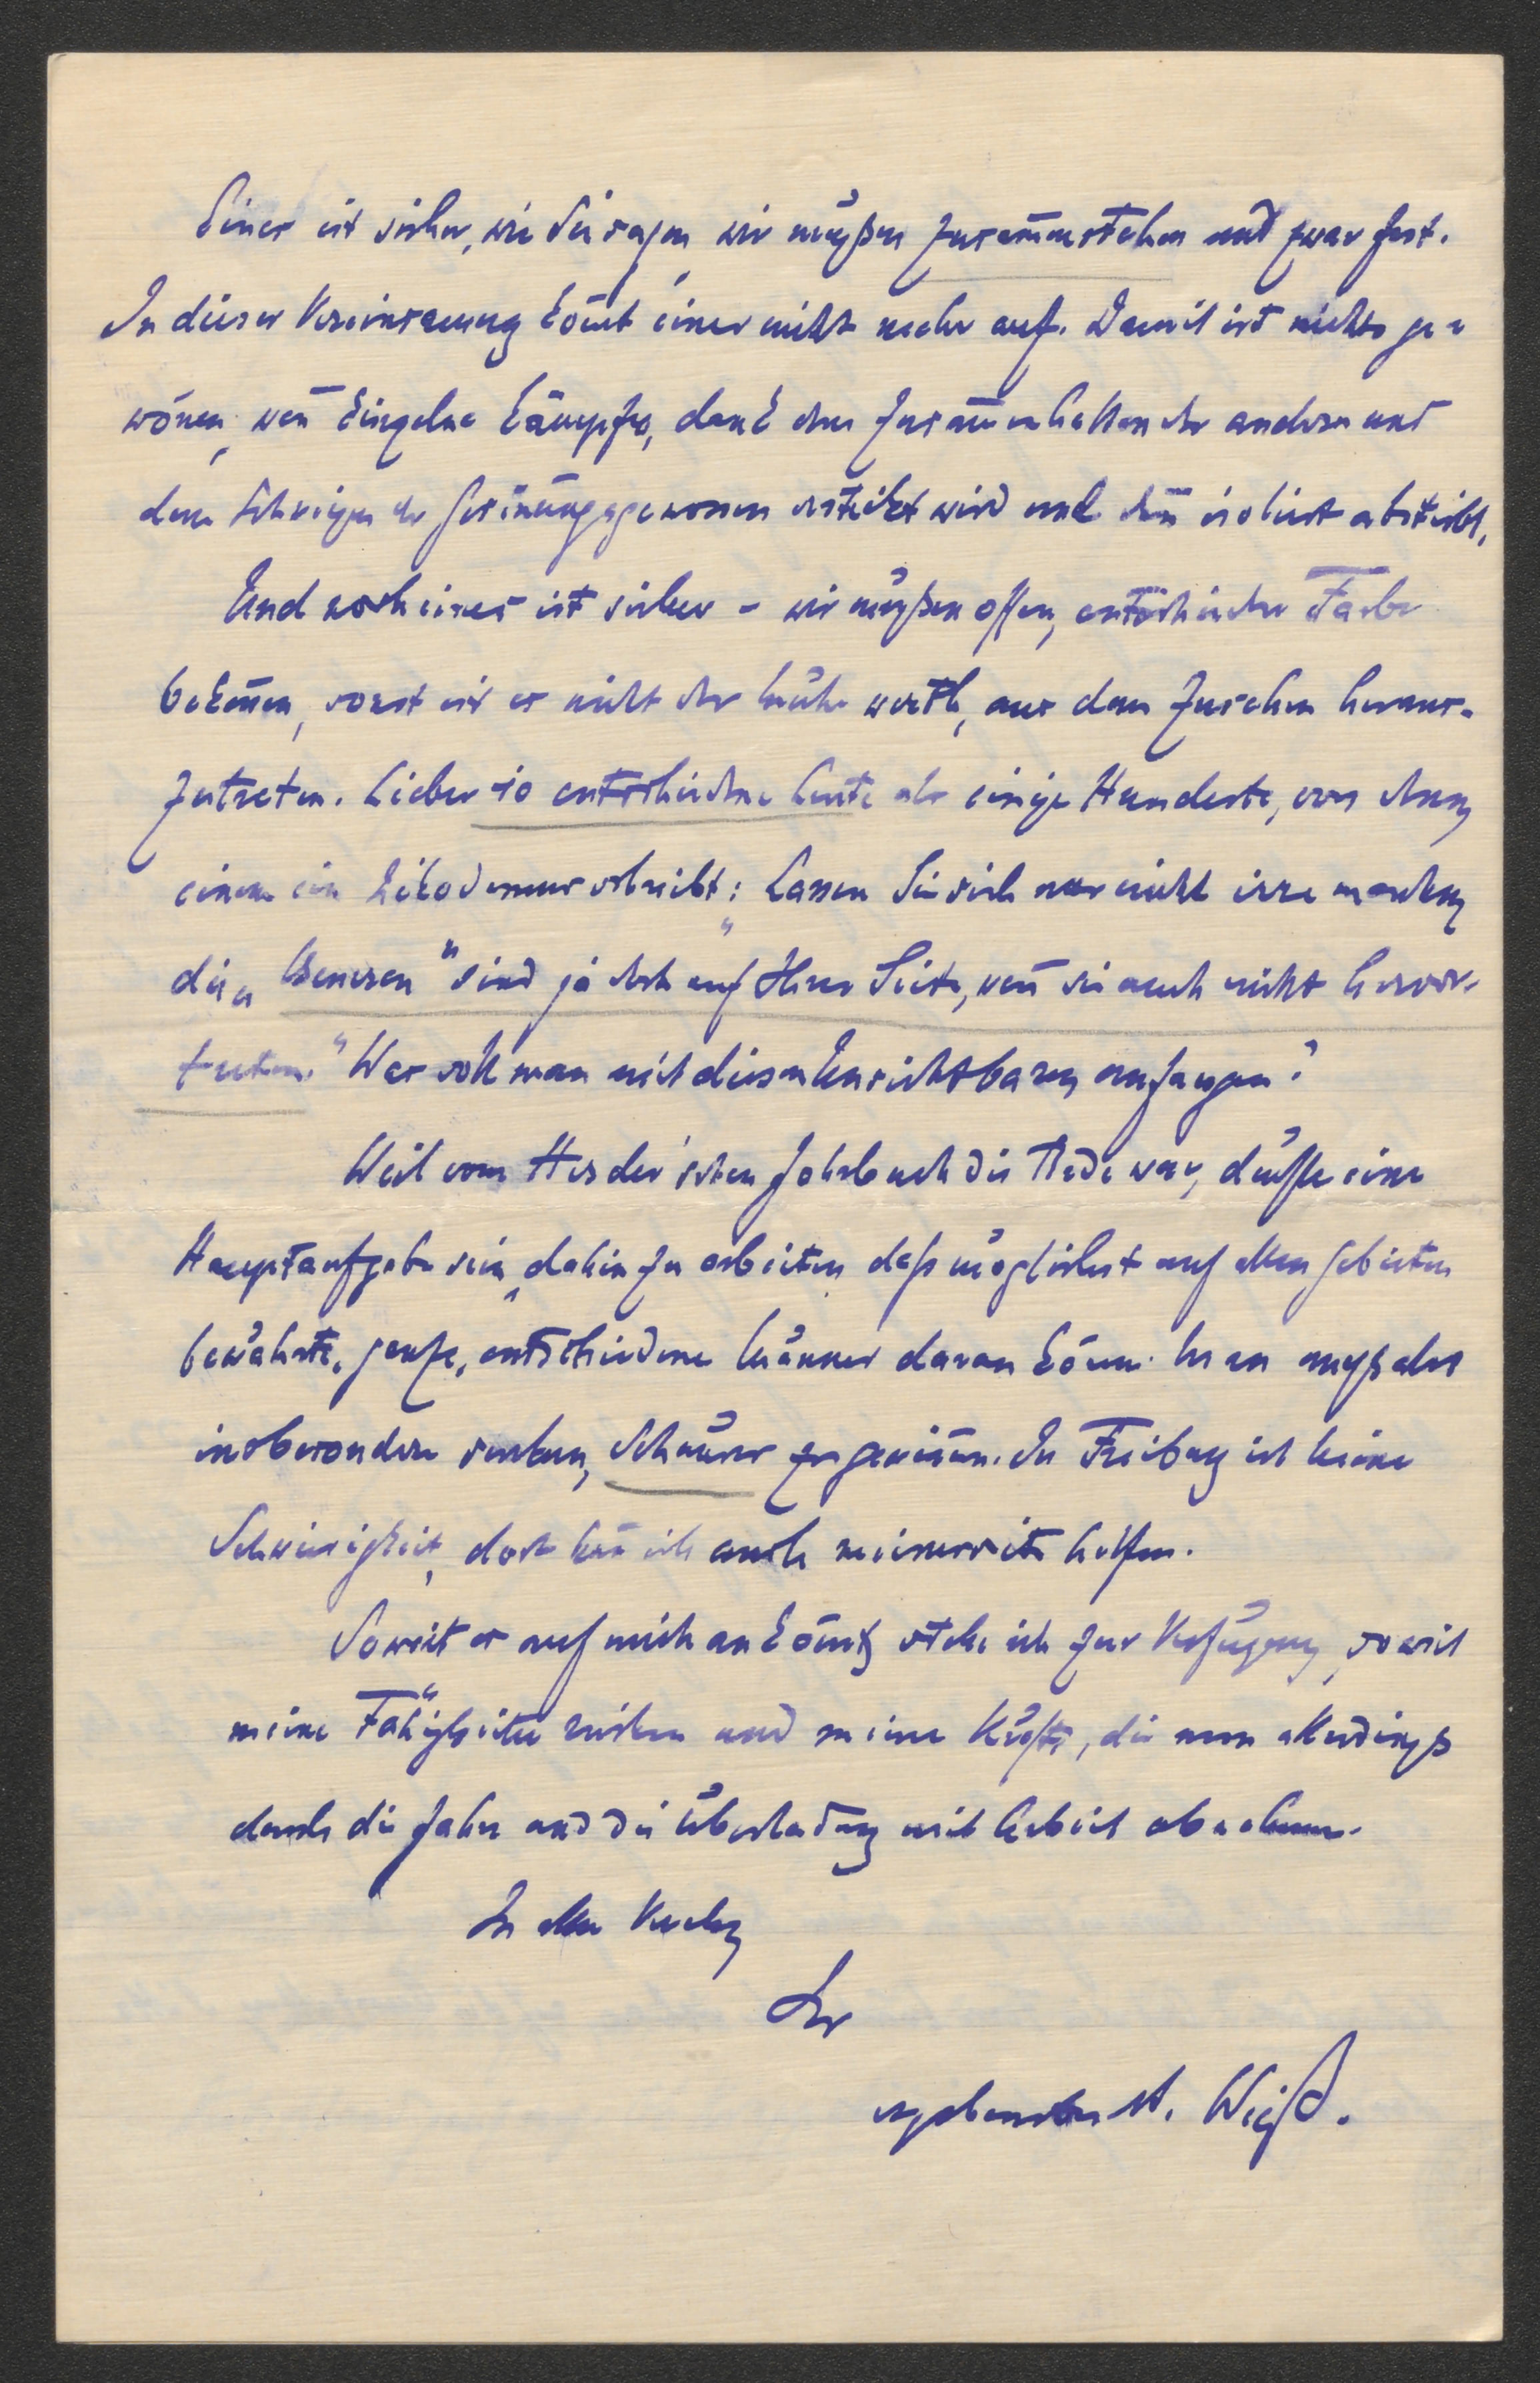 Eines ist sicher, wie Sie sagen, wir müßen zusam̄enstehen und zwar fest.
In dieser Vereinsamung kom̄t einer nicht mehr auf. Damit ist nichts ge-
won̄en, wen̄ Einzelne kämpfen, dank dem Zusam̄enhalten der andern und
dem Schweigen der Gesin̄ungsgenossen erstickt wird und dan̄ isoliert abstirbt.
Und noch eines ist sicher – wir müßen offen, entschieden Farbe
beken̄en, sonst ist es nicht der Mühe werth, aus dem Zusehen heraus-
zutreten. Lieber 10 entschiedene Leute als einige Hunderte, von denen
einem ein Nikodemus schreibt: „Lassen Sie sich nur nicht irre machen,
die „Besseren" sind ja doch auf Ihrer Seite, wen̄ sie auch nicht hervor-
treten." Was soll man mit diesen Unsichtbaren anfangen?
Weil vom Herder'schen Jahrbuch die Rede war, dürfte eine
Hauptaufgabe sein, dahin zu arbeiten, daß möglichst auf allen Gebieten
bewährte, ganze, entschiedene Männer daran kom̄en. Man muß also
insbesondere suchen, Schnürer zu gewin̄en. In Freiburg ist keine
Schwierigkeit, dort kan̄ ich auch meinerseits helfen.
Soweit es auf mich ankom̄t, stehe ich zur Verfügung, soweit
meine Fähigkeiten reichen und meine Kräfte, die nun allerdings
durch die Jahre und die Überladung mit Arbeit abnehmen.
In aller Verehrung
Ihr
ergebenster A. Weiß.